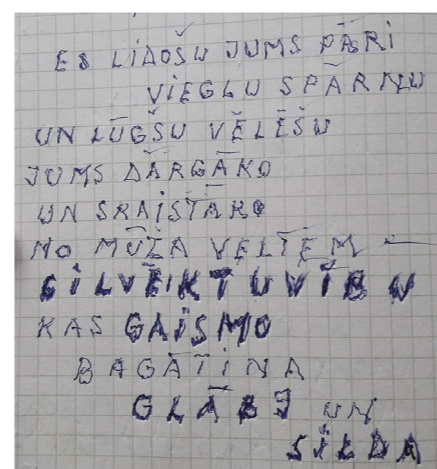 ES LIDOŠU JUMS PĀRI
VIEGLU SPĀRNU
UN LŪGŠU VĒLĒŠU
JUMS DĀRGĀKO
UN SKAISTĀKO
NO MŪŽA VELTĒM —
CILVĒKTUVĪBU
KAS GAISMO
BAGĀTINA
GLĀBJ UN
SILDA